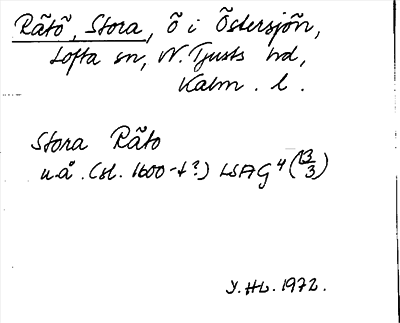 Rätö, Stora, ö i Östersjön,
Lofta sn, N. Tjusts hd,
Kalm. l.
Stora Rätö
u.å. (sl. 1600-t?) LSAG 4 (13/3)
Y.HL. 1972.